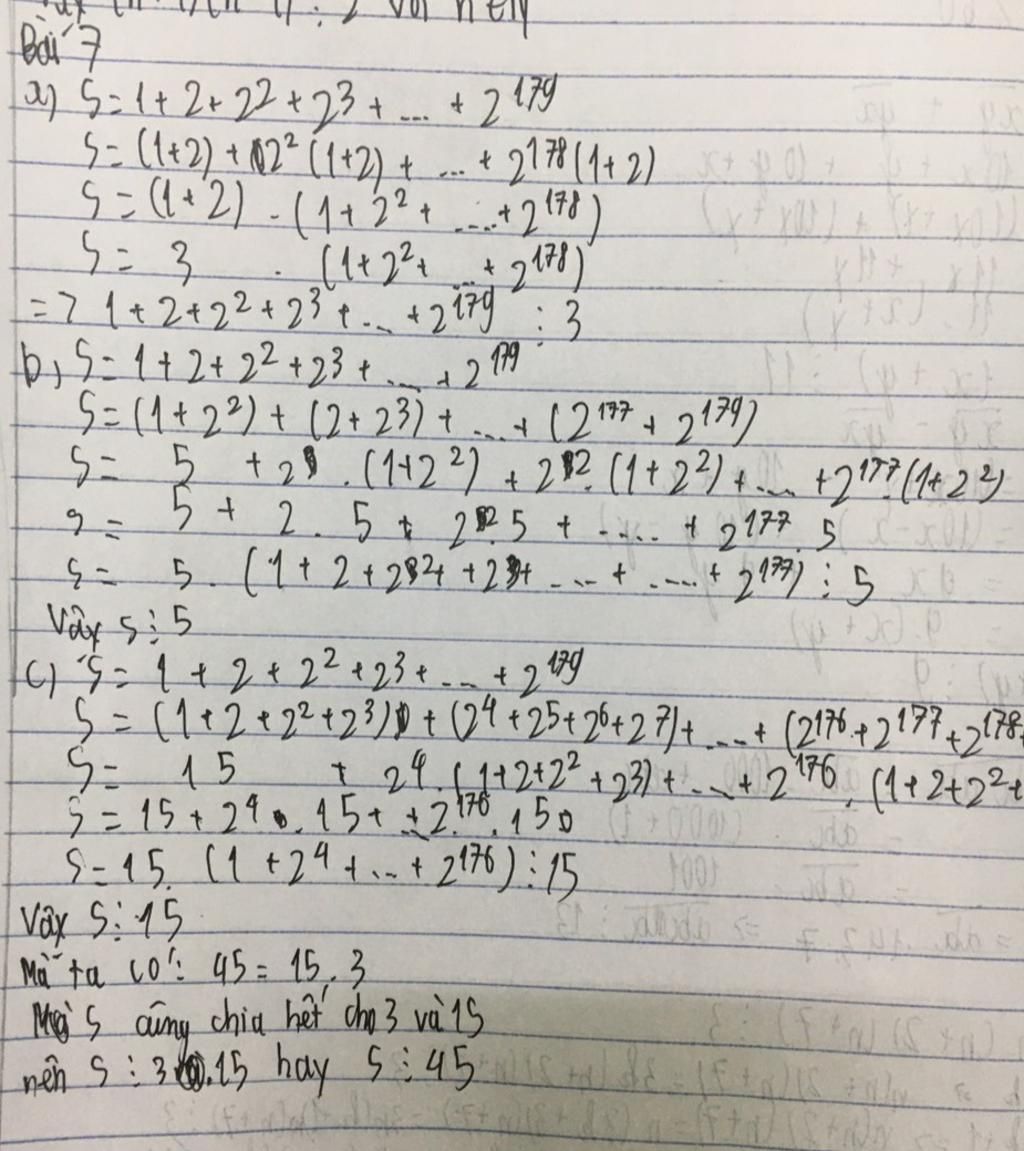 Bài 7
a) S = 1 + 2 + 2² + 2³ + ... + 2¹⁷⁹
S = (1+2) + 2² (1+2) + ... + 2¹⁷⁸ (1+2)
S = (1+2) . (1 + 2² + ... + 2¹⁷⁸)
S = 3 . (1 + 2² + ... + 2¹⁷⁸)
=> 1 + 2 + 2² + 2³ + ... + 2¹⁷⁹ ⋮ 3
b) S = 1 + 2 + 2² + 2³ + ... + 2¹⁷⁹
S = (1 + 2²) + (2 + 2³) + ... + (2¹⁷⁷ + 2¹⁷⁹)
S = 5 + 2 . (1+2²) + 2² . (1+2²) + ... + 2¹⁷⁷ . (1+2²)
S = 5 + 2 . 5 + 2² . 5 + .... + 2¹⁷⁷ . 5
S = 5 . (1 + 2 + 2² + 2³ + ... + .... + 2¹⁷⁷) ⋮ 5
Vậy S ⋮ 5
c) S = 1 + 2 + 2² + 2³ + ... + 2¹⁷⁹
S = (1 + 2 + 2² + 2³) + (2⁴ + 2⁵ + 2⁶ + 2⁷) + ... + (2¹⁷⁶ + 2¹⁷⁷ + 2¹⁷⁸ +
S = 15 + 2⁴ . (1 + 2 + 2² + 2³) + ... + 2¹⁷⁶ . (1 + 2 + 2² +
S = 15 + 2⁴ . 15 + ... + 2¹⁷⁶ . 15
S = 15 . (1 + 2⁴ + ... + 2¹⁷⁶) ⋮ 15
Vậy S ⋮ 15
Mà ta có : 45 = 15 . 3
Mà S cũng chia hết cho 3 và 15
nên S ⋮ 3 . 15 hay S ⋮ 45